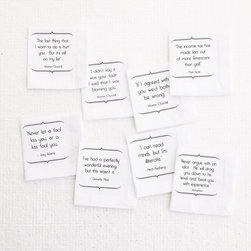 "The last thing that
I want to do is hurt
you. But it's still
on my list"
Winston Churchill
"I didn't say it
was your fault,
I said that I was
blaming you.
Winston Churchill
"If I agreed with
you we'd both
be wrong."
Winston Churchill
"The income tax has
made liars out
of more Americans
than golf."
Mark Twain
"Never let a fool
kiss you, or a
kiss fool you."
Joey Adams
"I've had a perfectly
wonderful evening,
but this wasn't it."
Groucho Marx
"I can read
minds, but I'm
illiterate."
Mitch Hedberg
"Never argue with an
idiot. He will drag
you down to his
level and beat you
with experience."